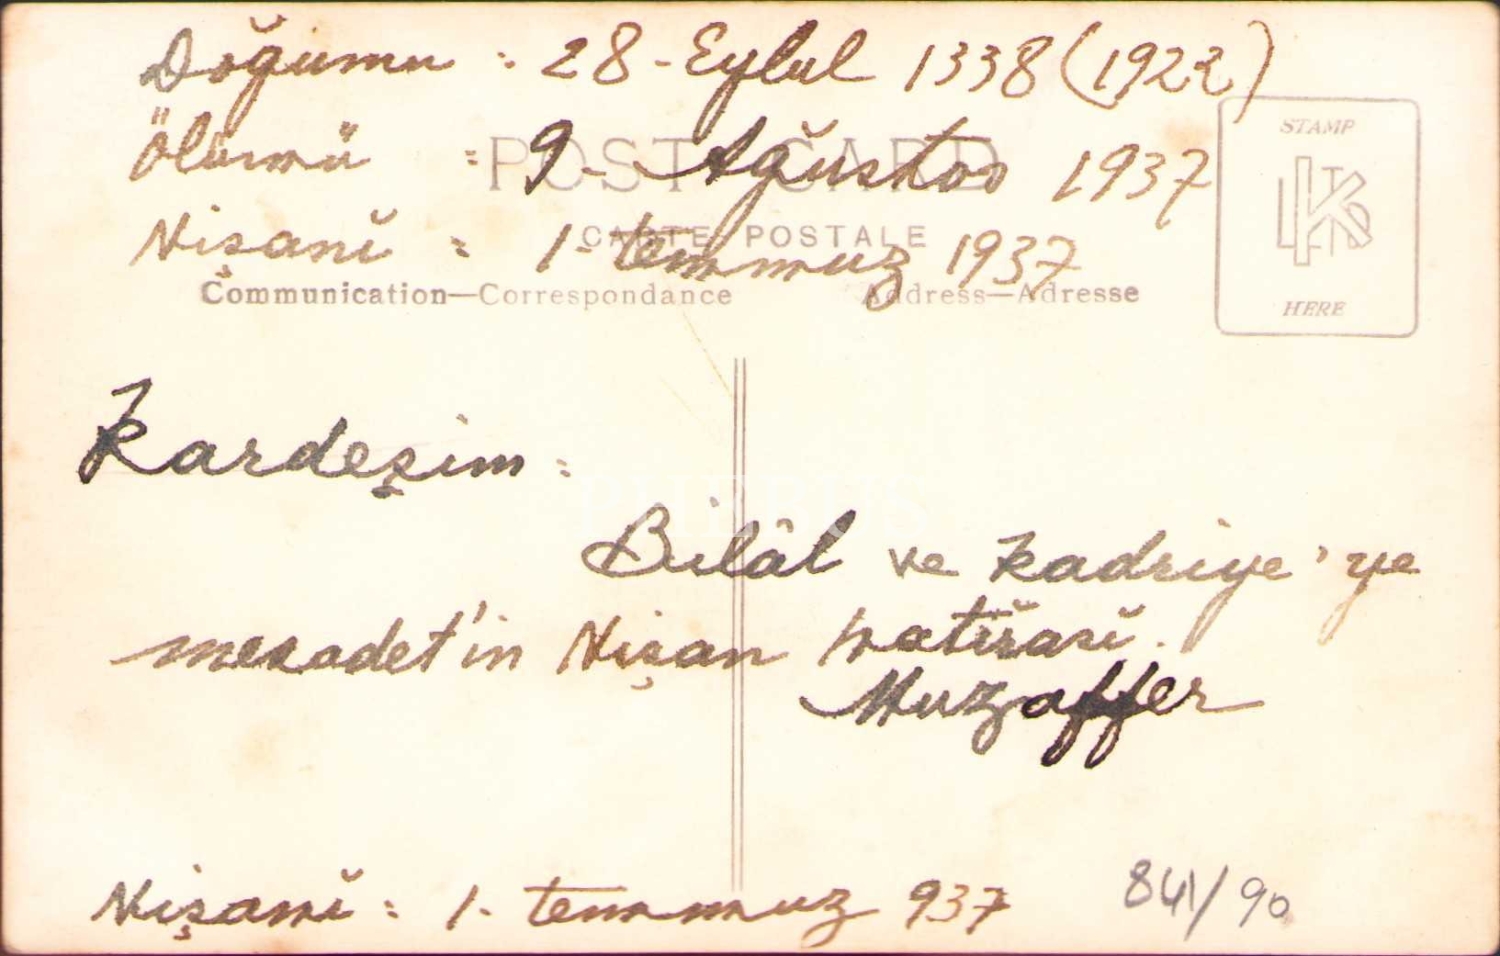 Doğumu : 28-Eylul 1338 (1922)
POST CARD
Ölümü : 9- Ağustos 1937
STAMP
CARTE POSTALE
Nişanĭ : 1-temmuz 1937
Communication—Correspondance Address—Adresse
HERE
Kardeşim :
Bilâl ve Kadriye'ye
mesadet'in Nişan hatĭrasĭ.
Muzaffer
Nişanĭ : 1- temmuz 937
841/90